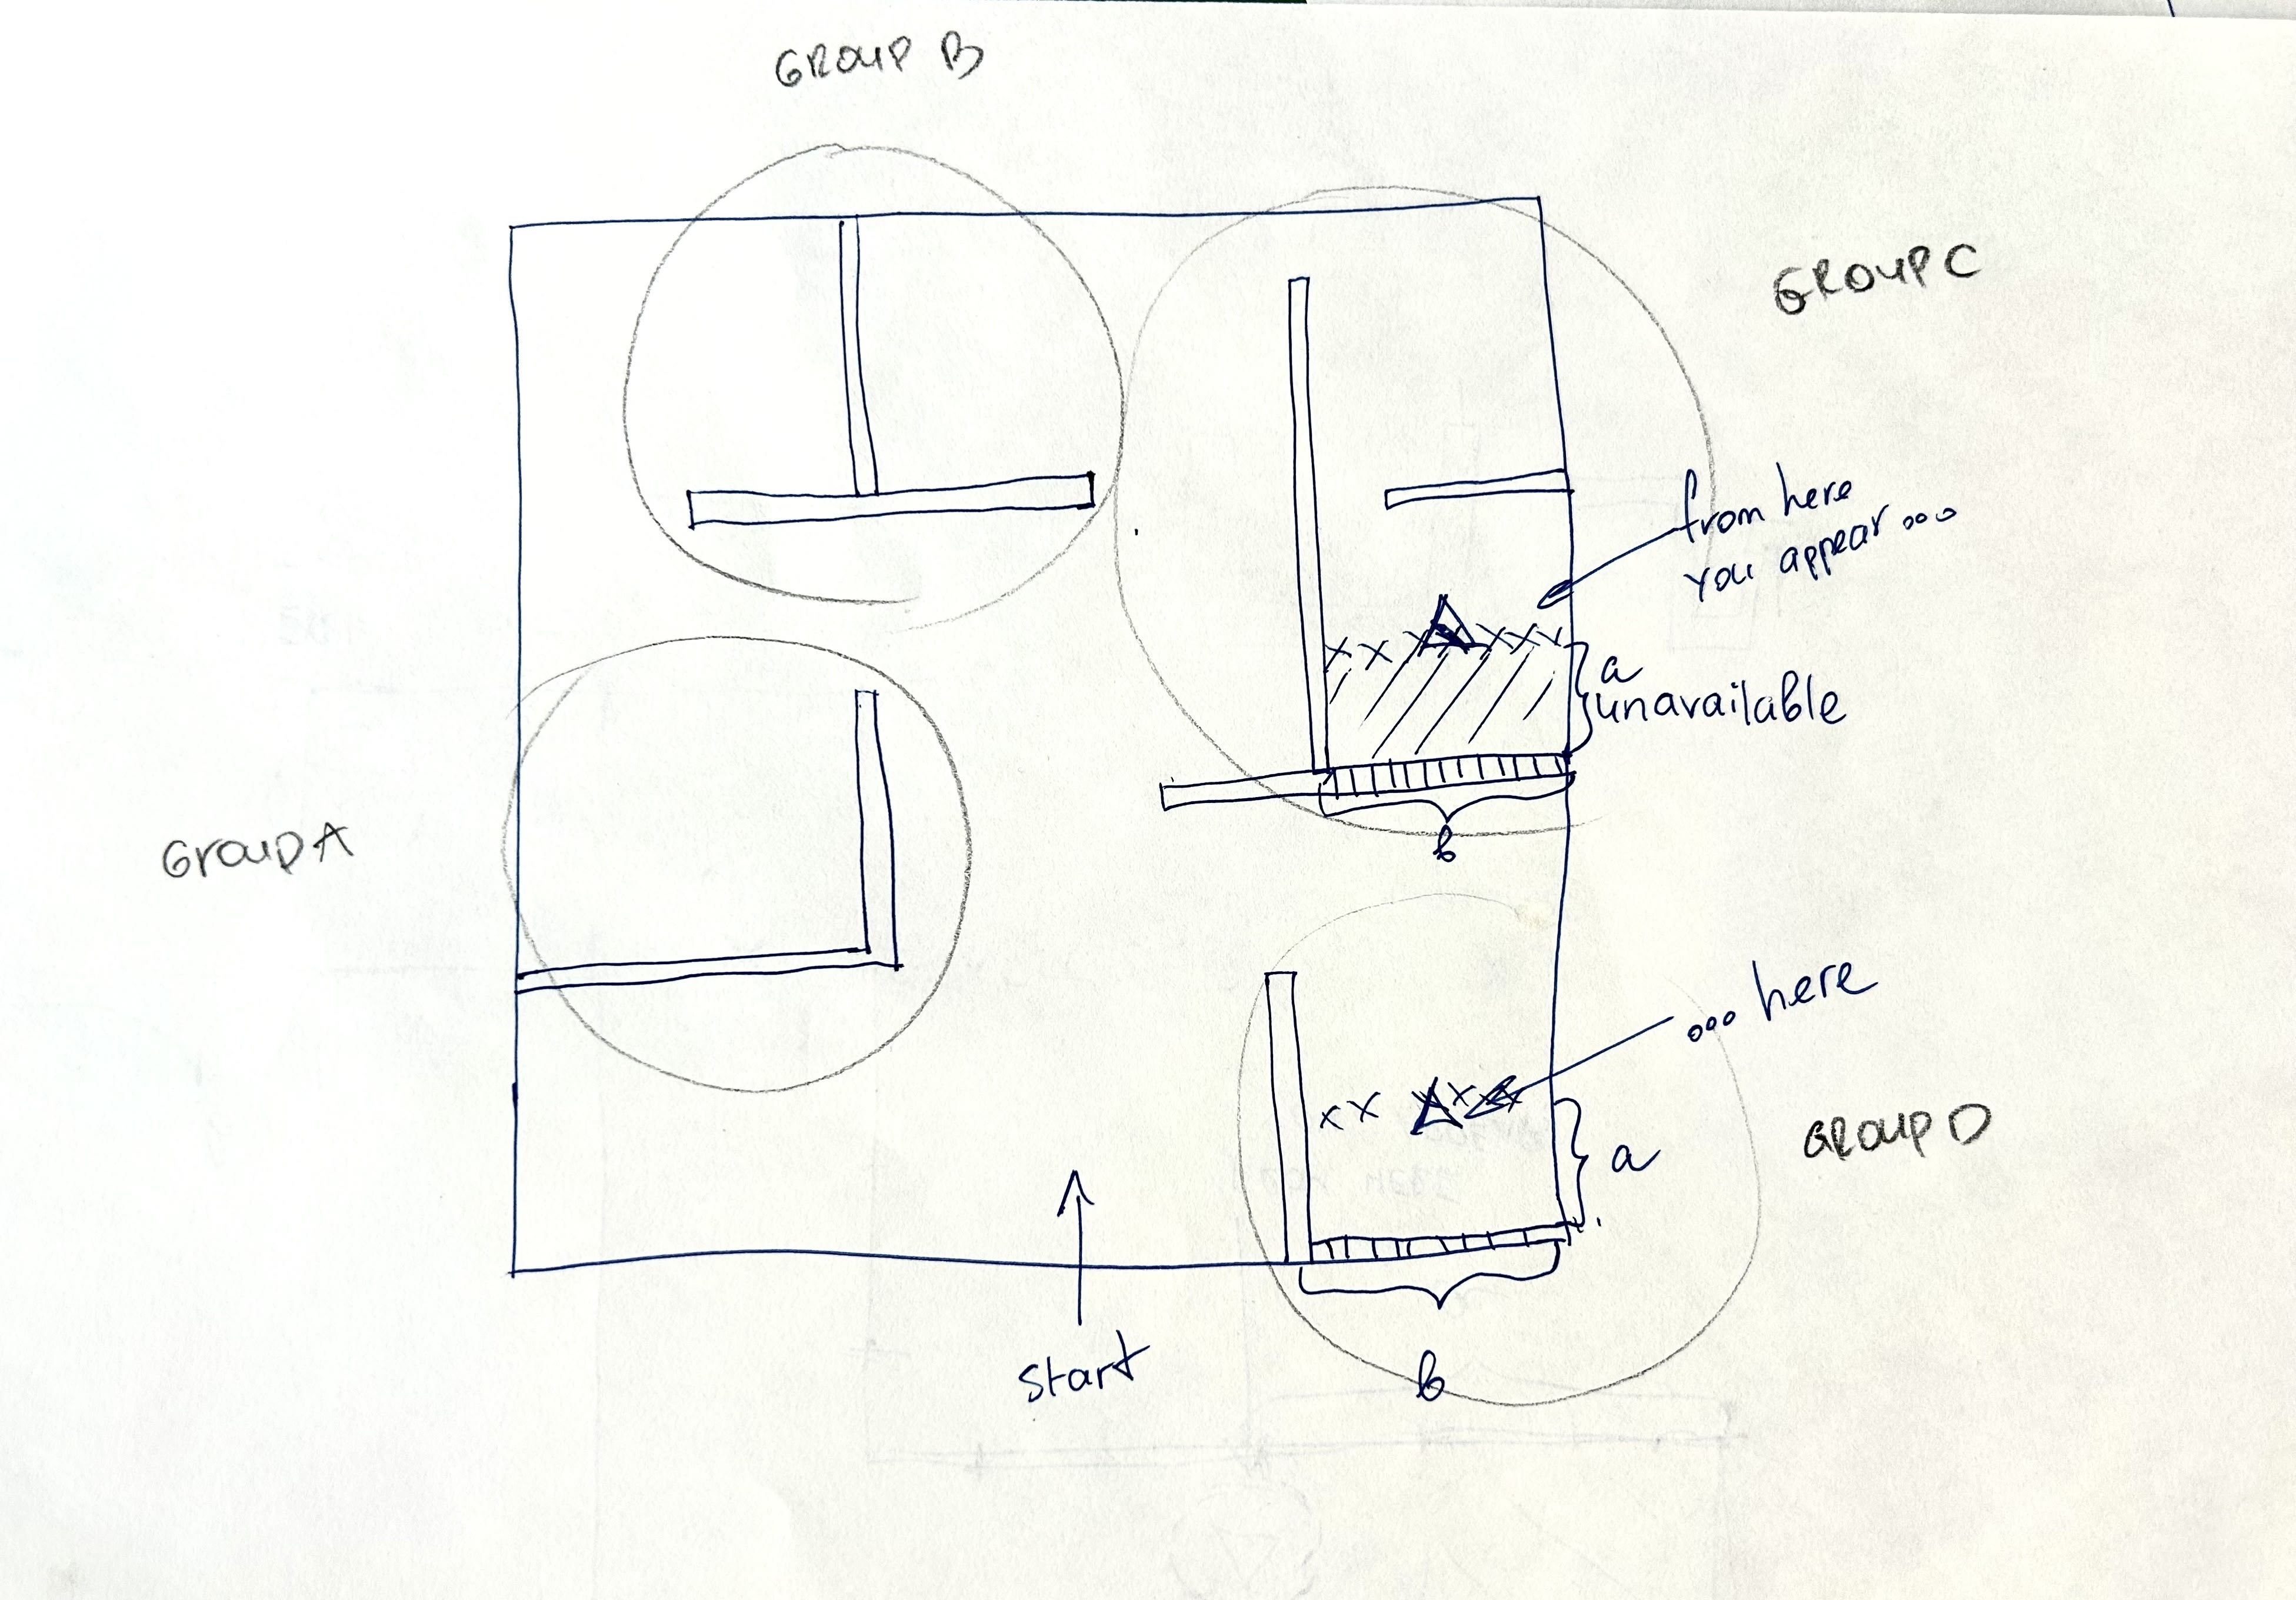 GROUP B
GROUP C
from here
you appear ...
a
unavailable
b
GROUP A
... here
GROUP D
a
b
start